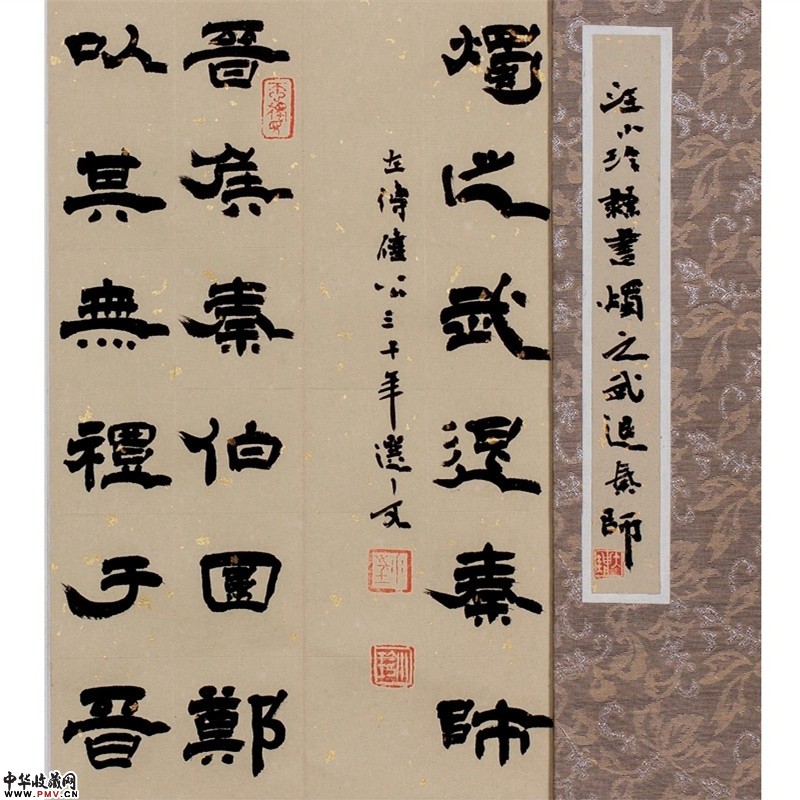 汪小玲隸書燭之武退秦師
燭之武退秦師
左傳僖公三十年選文
晉侯秦伯圍鄭
以其無禮于晉
中华收藏网
www.PMV.CN